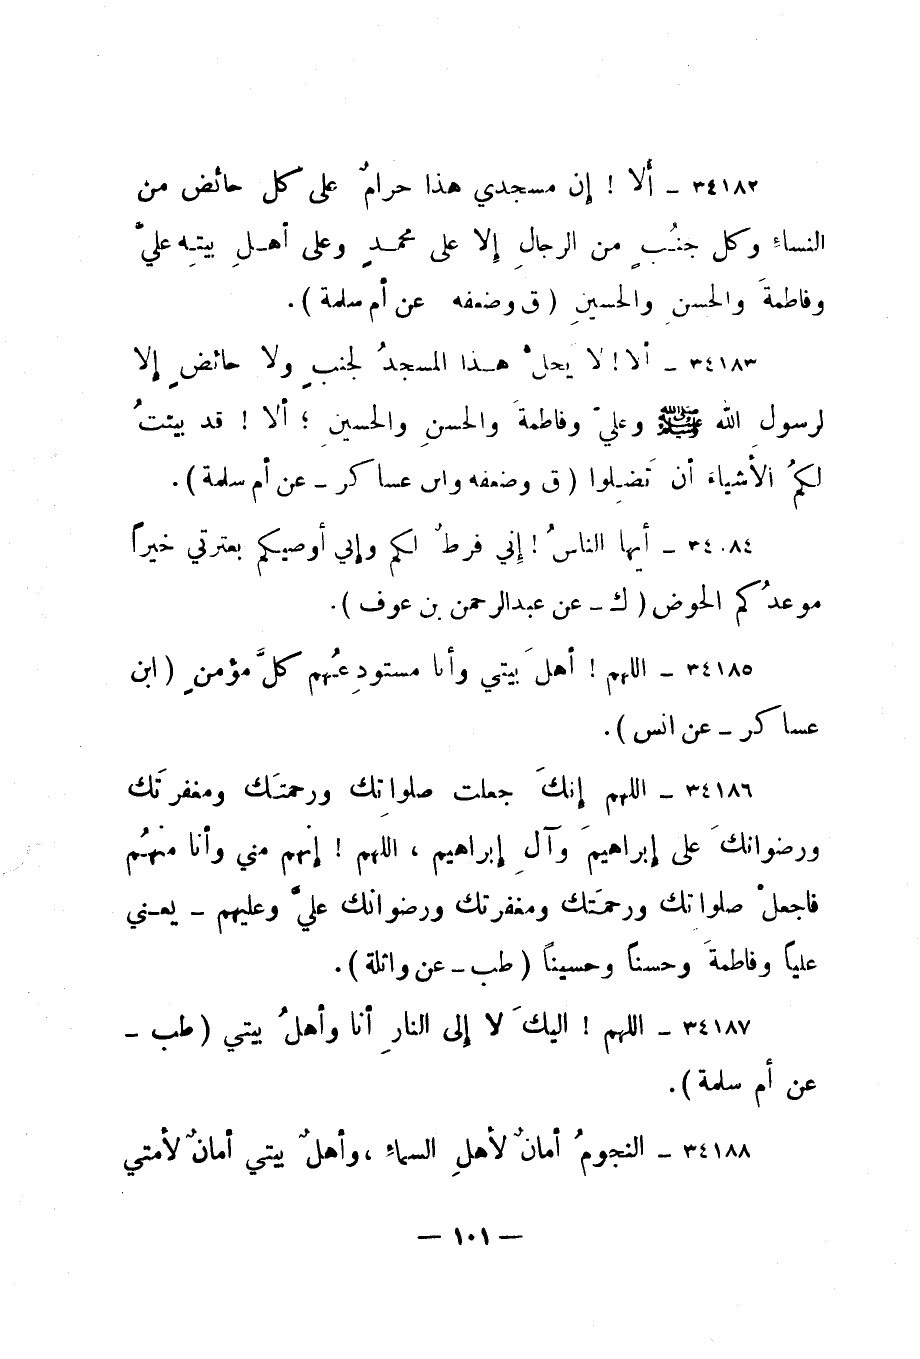 ٣٤١٨٢ ـ ألا ! إن مسجدي هذا حرامٌ على كل حائض من
النساءِ وكل جنُبٍ من الرجالِ إلا على محمدٍ وعلى أهلِ بيتِه عليّ
وفاطمةَ والحسنِ والحسينِ ( ق وضعفه عن أم سلمة ) .
٣٤١٨٣ ـ ألا ! لا يحلُّ هذا المسجدُ لجنبٍ ولا حائضٍ إلا
لرسولِ الله ﷺ وعليّ وفاطمةَ والحسنِ والحسينِ ؛ ألا ! قد بينتُ
لكمُ الأشياءَ أن تَضِلوا ( ق وضعفه وابن عساكر ـ عن أم سلمة ) .
٣٤٠٨٤ ـ أيها الناسُ ! إني فرطٌ لكم وإني أوصيكم بعترتي خيراً
موعدُكم الحوض ( ك ـ عن عبدالرحمن بن عوف ) .
٣٤١٨٥ ـ اللهم ! أهلَ بيتي وأنا مستودِعُهم كلَّ مؤمنٍ ( ابن
عساكر ـ عن انس ) .
٣٤١٨٦ ـ اللهم إنكَ جعلت صلواتِك ورحمتَك ومغفرتَك
ورضوانكَ على إبراهيمَ وآلِ إبراهيم ، اللهم ! إنهم مني وأنا منهُم
فاجعلْ صلواتِك ورحمتَك ومغفرتك ورضوانك عليَّ وعليهم ـ يعني
علياً وفاطمةَ وحسناً وحسيناً ( طب ـ عن واثلة ) .
٣٤١٨٧ ـ اللهم ! اليكَ لا إلى النارِ أنا وأهلُ بيتي ( طب ـ
عن أم سلمة ) .
٣٤١٨٨ ـ النجومُ أمانٌ لأهلِ السماءِ ، وأهلُ بيتي أمانٌ لأمتي
— ١٠١ —